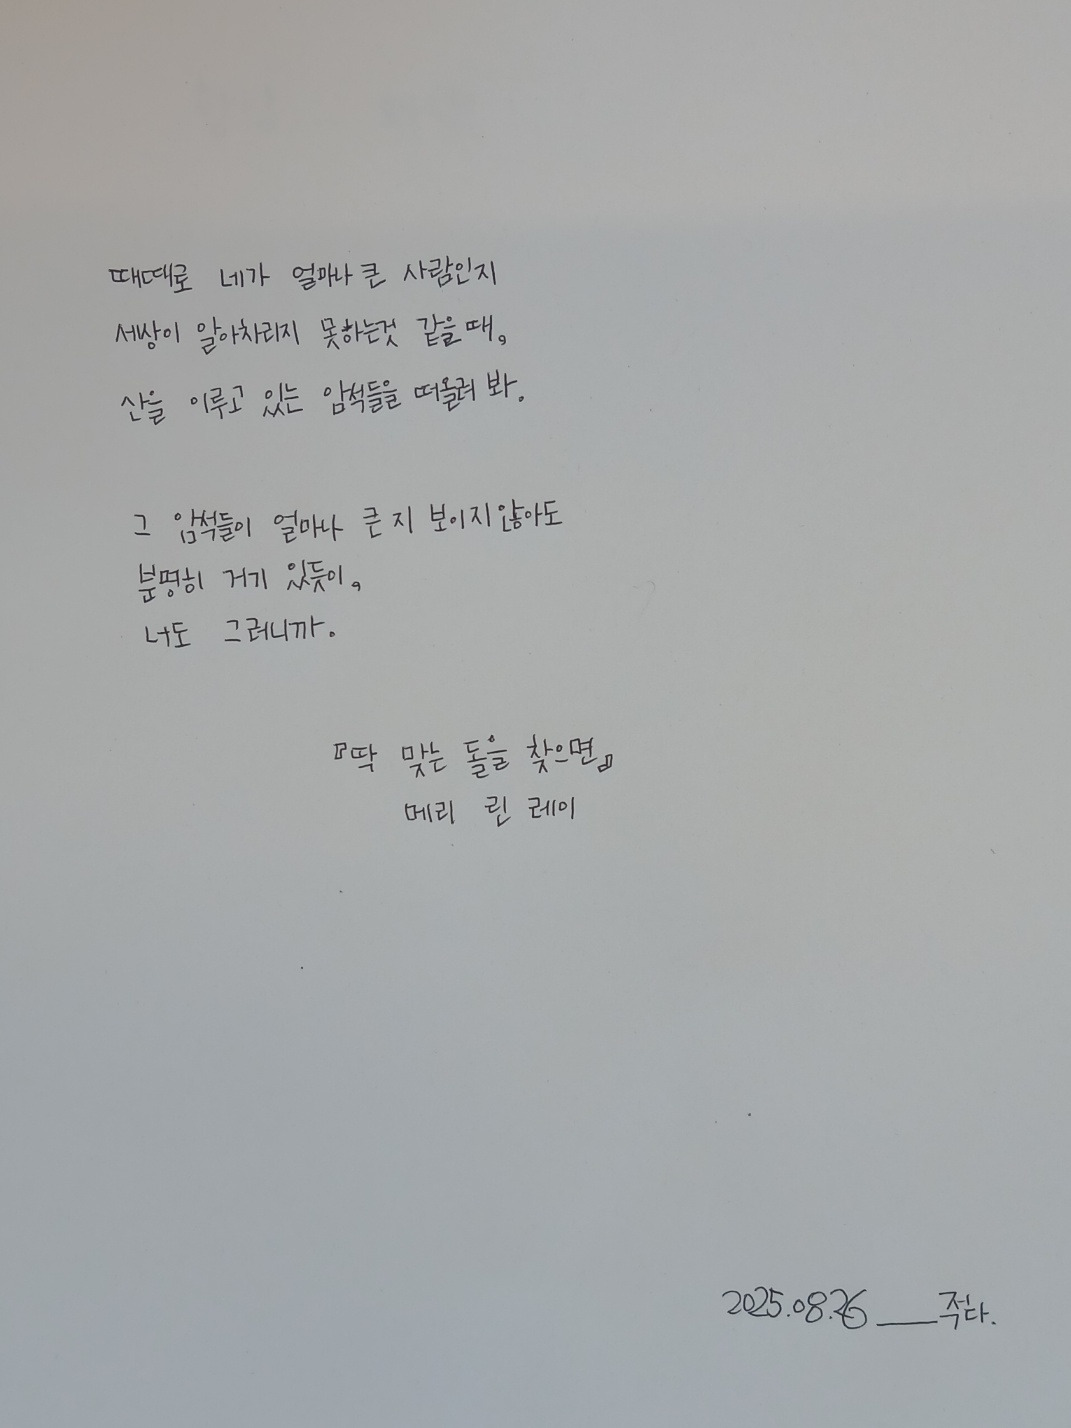 때때로 네가 얼마나 큰 사람인지
세상이 알아차리지 못하는것 같을 때,
산을 이루고 있는 암석들을 떠올려 봐.
그 암석들이 얼마나 큰 지 보이지 않아도
분명히 거기 있듯이,
너도 그러니까.
『딱 맞는 돌을 찾으면』
메리 린 레이
2025.08.26 ___적다.